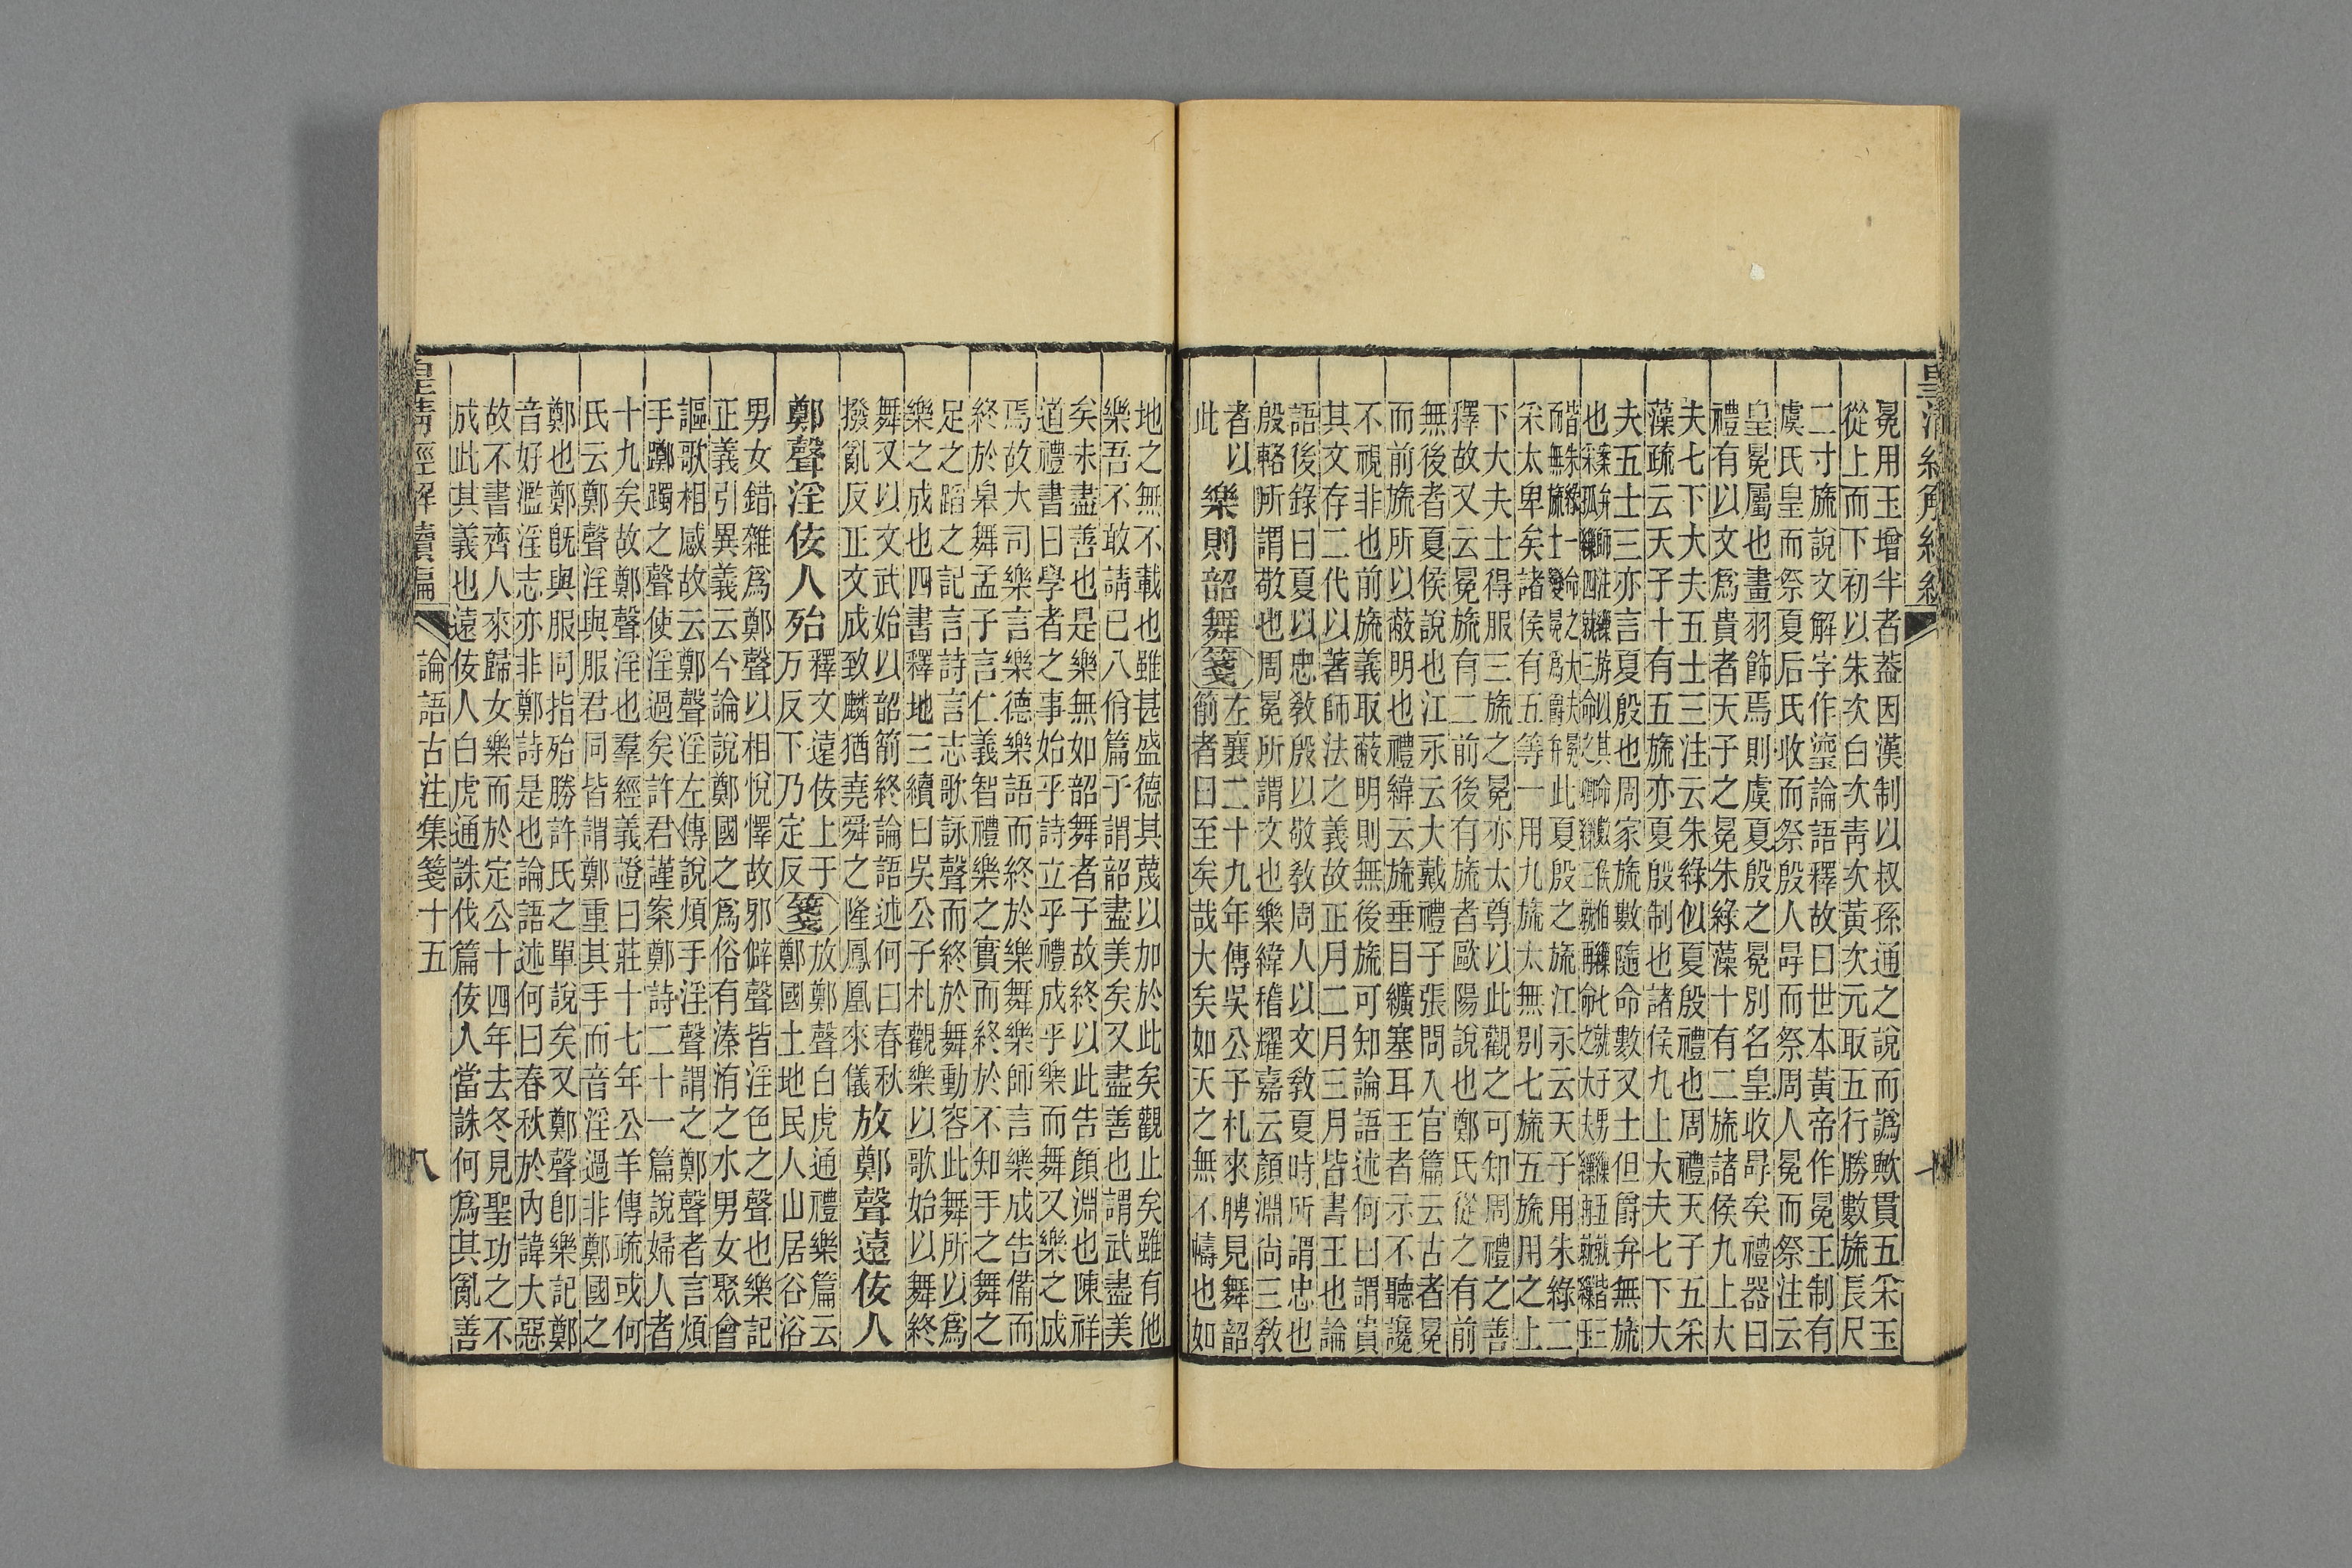 冕用玉增半者葢因漢制以叔孫通之說而譌歟貫五采玉
從上而下初以朱次白次青次黃次元取五行勝數旒長尺
二寸旒說文解字作瑬論語釋故曰世本黃帝作冕王制有
虞氏皇而祭夏后氏收而祭殷人冔而祭周人冕而祭注云
皇冕屬也畫羽飾焉則虞夏殷之冕別名皇收冔矣禮器曰
禮有以文爲貴者天子之冕朱綠藻十有二旒諸侯九上大
夫七下大夫五士三注云朱綠似夏殷禮也周禮天子五采
藻疏云天子十有五旒亦夏殷制也諸侯九上大夫七下大
夫五士三亦言夏殷也周家旒數隨命數又士但爵弁無旒
下大夫士得服三旒之冕亦太尊以此觀之可知周禮之善
釋故又云冕旒有二前後有旒者歐陽說也鄭氏從之有前
無後者夏侯說也江永云大戴禮子張問入官篇云古者冕
而前旒所以蔽明也禮緯云旒垂目纊塞耳王者示不聽讒
不視非也前旒義取蔽明則無後旒可知論語述何曰謂貴
其文存二代以著師法之義故正月二月三月皆書王也論
語後錄曰夏以忠敎殷以敬敎周人以文敎夏時所謂忠也
殷輅所謂敬也周冕所謂文也樂緯稽耀嘉云顏淵尚三敎
者以此
樂則韶舞
箋
左襄二十九年傳吳公子札來聘見舞韶
箾者曰至矣哉大矣如天之無不幬也如
地之無不載也雖甚盛德其蔑以加於此矣觀止矣雖有他
樂吾不敢請已八佾篇子謂韶盡美矣又盡善也謂武盡美
矣未盡善也是樂無如韶舞者子故終以此告顏淵也陳祥
道禮書曰學者之事始乎詩立乎禮成乎樂而舞又樂之成
焉故大司樂言樂德樂語而終於樂舞樂師言樂成告備而
終於皋舞孟子言仁義智禮樂之實而終於不知手之舞之
足之蹈之記言詩言志歌詠聲而終於舞動容此舞所以爲
樂之成也四書釋地三續曰吳公子札觀樂以歌始以舞終
舞又以文武始以韶箾終論語述何曰春秋
撥亂反正文成致麟猶堯舜之隆鳳凰來儀
放鄭聲遠佞人
鄭聲淫佞人殆
釋文遠佞上于
万反下乃定反
箋
放鄭聲白虎通禮樂篇云
鄭國土地民人山居谷浴
男女錯雜爲鄭聲以相悅懌故邪僻聲皆淫色之聲也樂記
正義引異義云今論說鄭國之爲俗有溱洧之水男女聚會
謳歌相感故云鄭聲淫左傳說煩手淫聲謂之鄭聲者言煩
手躑躅之聲使淫過矣許君謹案鄭詩二十一篇說婦人者
十九矣故鄭聲淫也羣經義證曰莊十七年公羊傳疏或何
氏云鄭聲淫與服君同皆謂鄭重其手而音淫過非鄭國之
鄭也鄭旣與服同指殆勝許氏之單說矣又鄭聲卽樂記鄭
音好濫淫志亦非鄭詩是也論語述何曰春秋於內諱大惡
故不書齊人來歸女樂而於定公十四年去冬見聖功之不
成此其義也遠佞人白虎通誅伐篇佞人當誅何爲其亂善
皇清經解續編
論語古注集箋十五
八